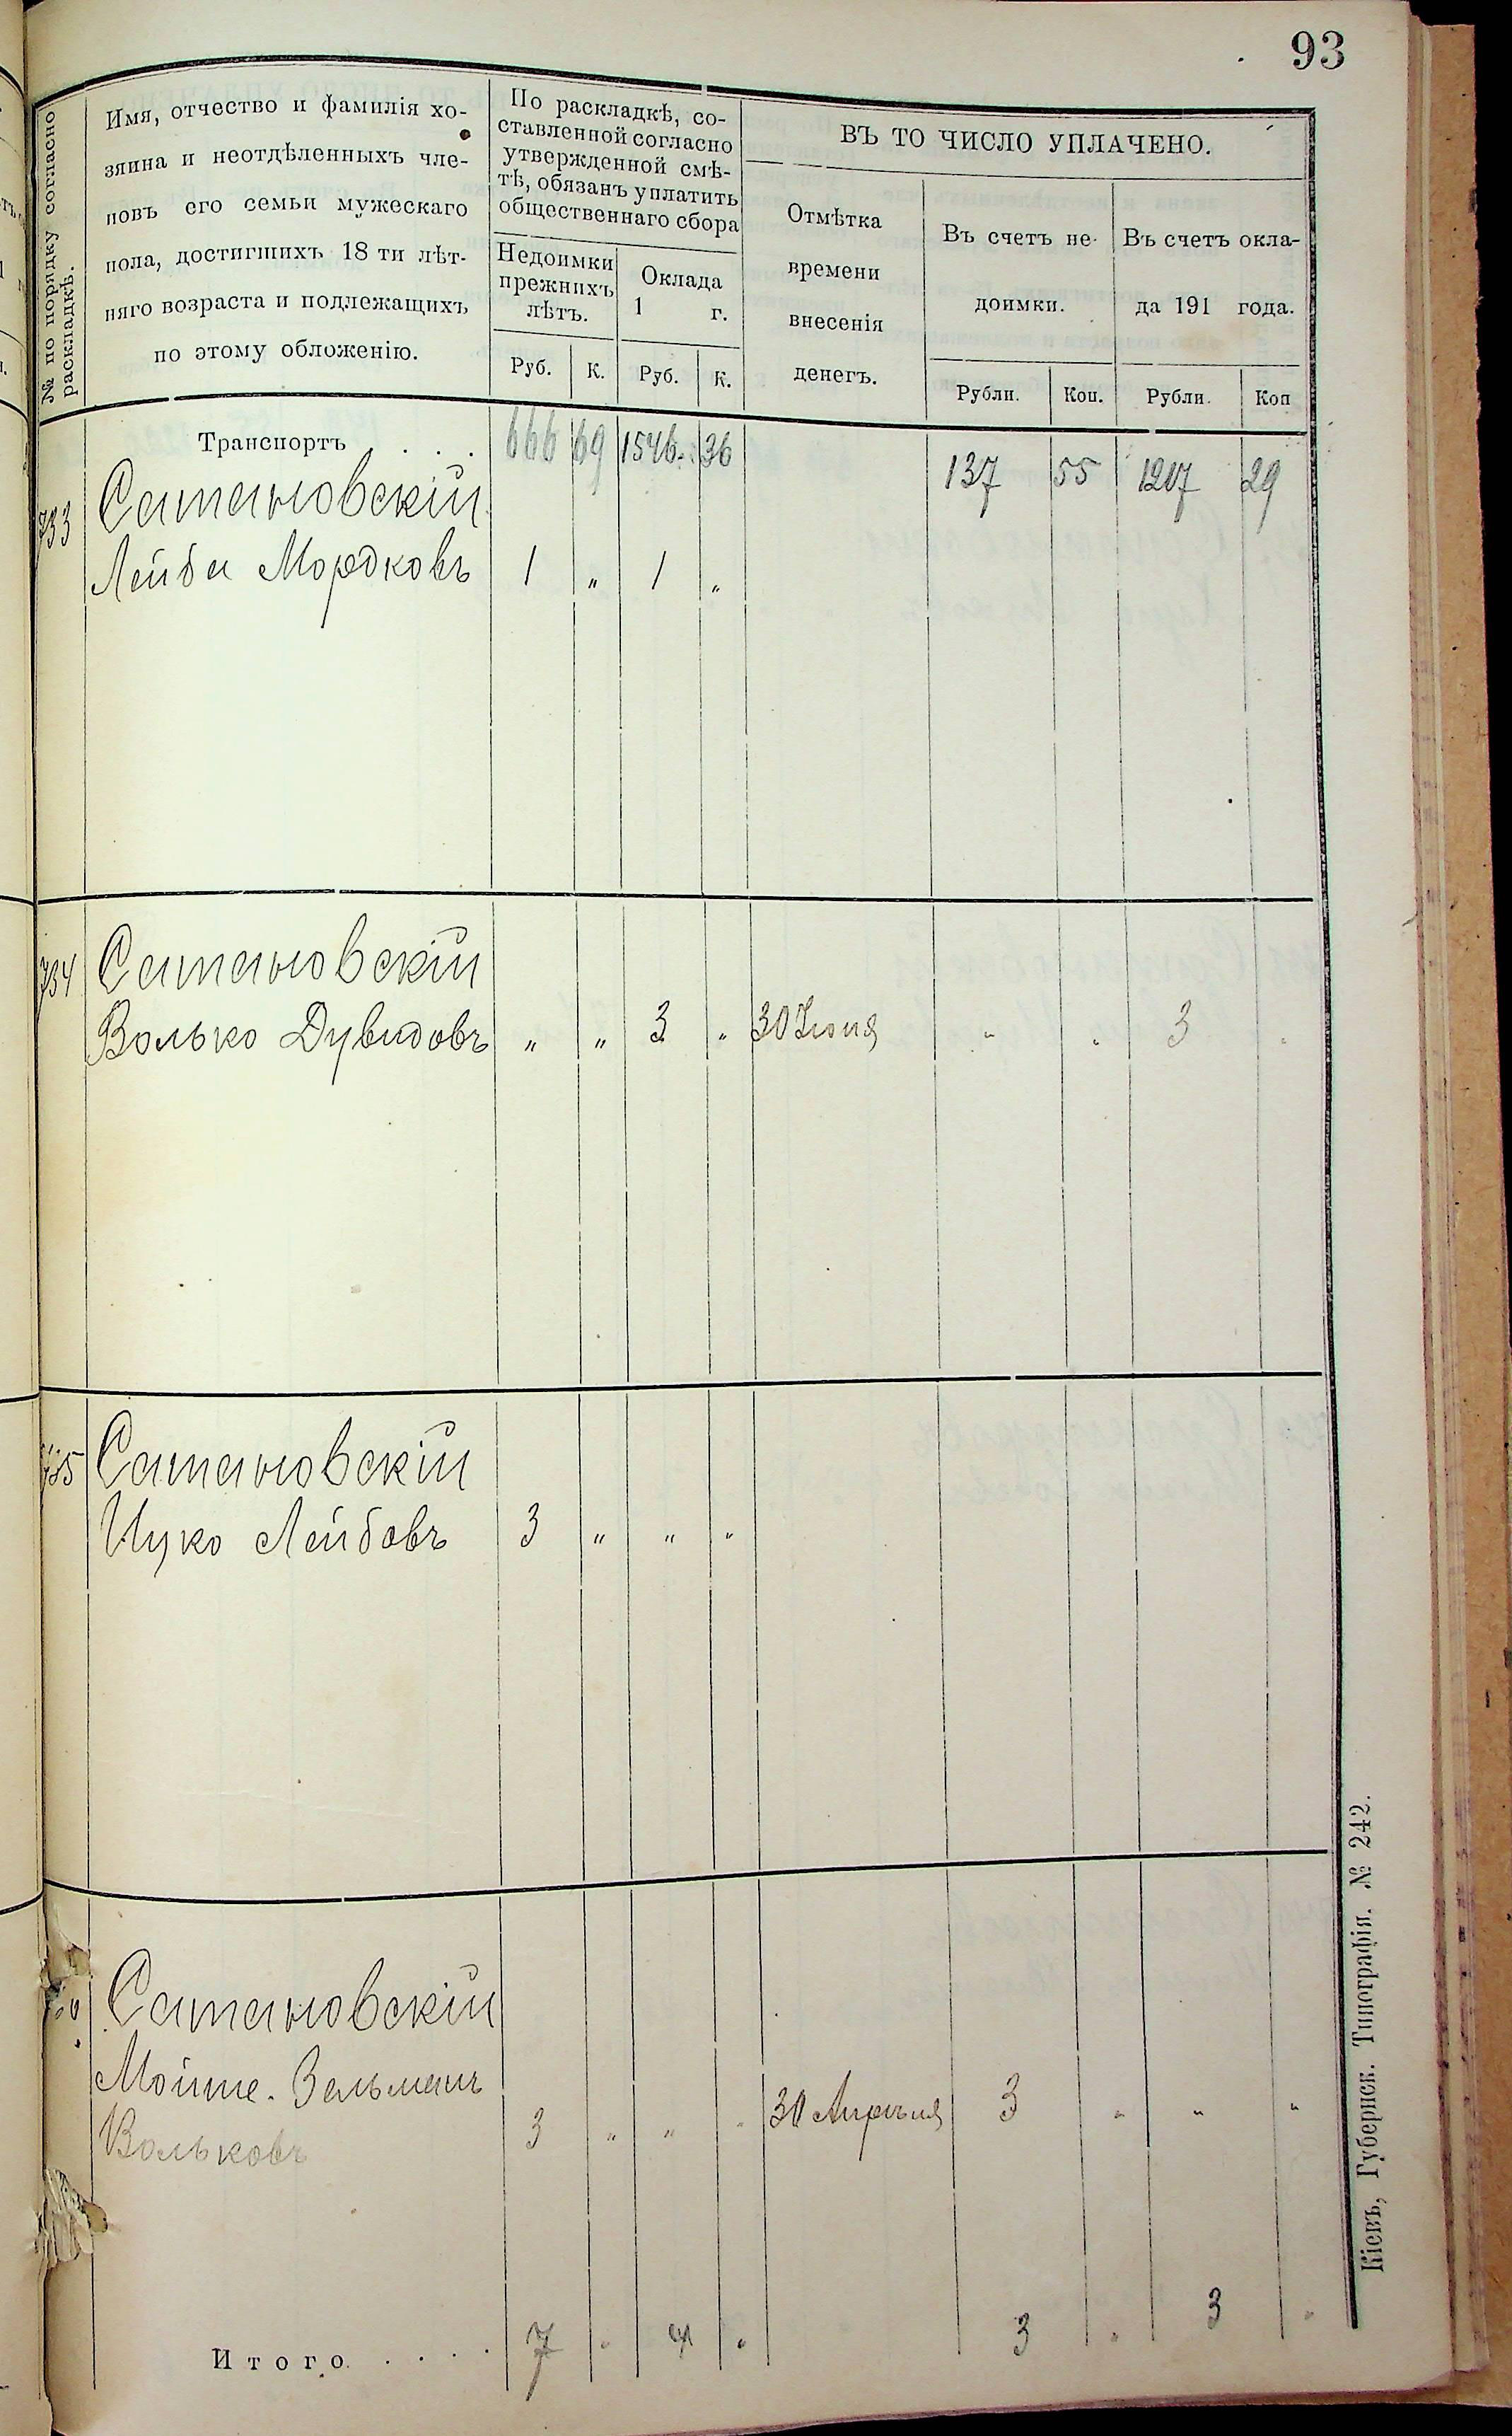 93
№ по порядку согласно
раскладкѣ.
Имя, отчество и фамилія хо-
зяина и неотдѣленныхъ чле-
новъ его семьи мужескаго
пола, достигшихъ 18 ти лѣт-
няго возраста и подлежащихъ
по этому обложенію.
По раскладкѣ, со-
ставленной согласно
утвержденной смѣ-
тѣ, обязанъ уплатить
общественнаго сбора
Недоимки
прежнихъ
лѣтъ.
Оклада
1 г.
Руб. К. Руб. К.
ВЪ ТО ЧИСЛО УПЛАЧЕНО.
Отмѣтка
времени
внесенія
денегъ.
Въ счетъ не-
доимки.
Въ счетъ окла-
да 191 года.
Рубли. Коп. Рубли. Коп
Транспортъ . . . 666 69 1546 36 137 55 1217 29
733 Сатановскій
Лейба Мордковъ 1 " 1 "
734 Сатановскій
Волько Дувидовъ " " 3 " 30 Іюня " " 3 "
735 Сатановскій
Ицко Лейбовъ 3 " " "
Сатановскій
Мойше-Зельманъ
Вольковъ 3 " " " 30 Апрѣля 3 " " "
Итого . . . . 7 " 4 " 3 " 3 "
Кіевъ, Губернск. Типографія. № 242.